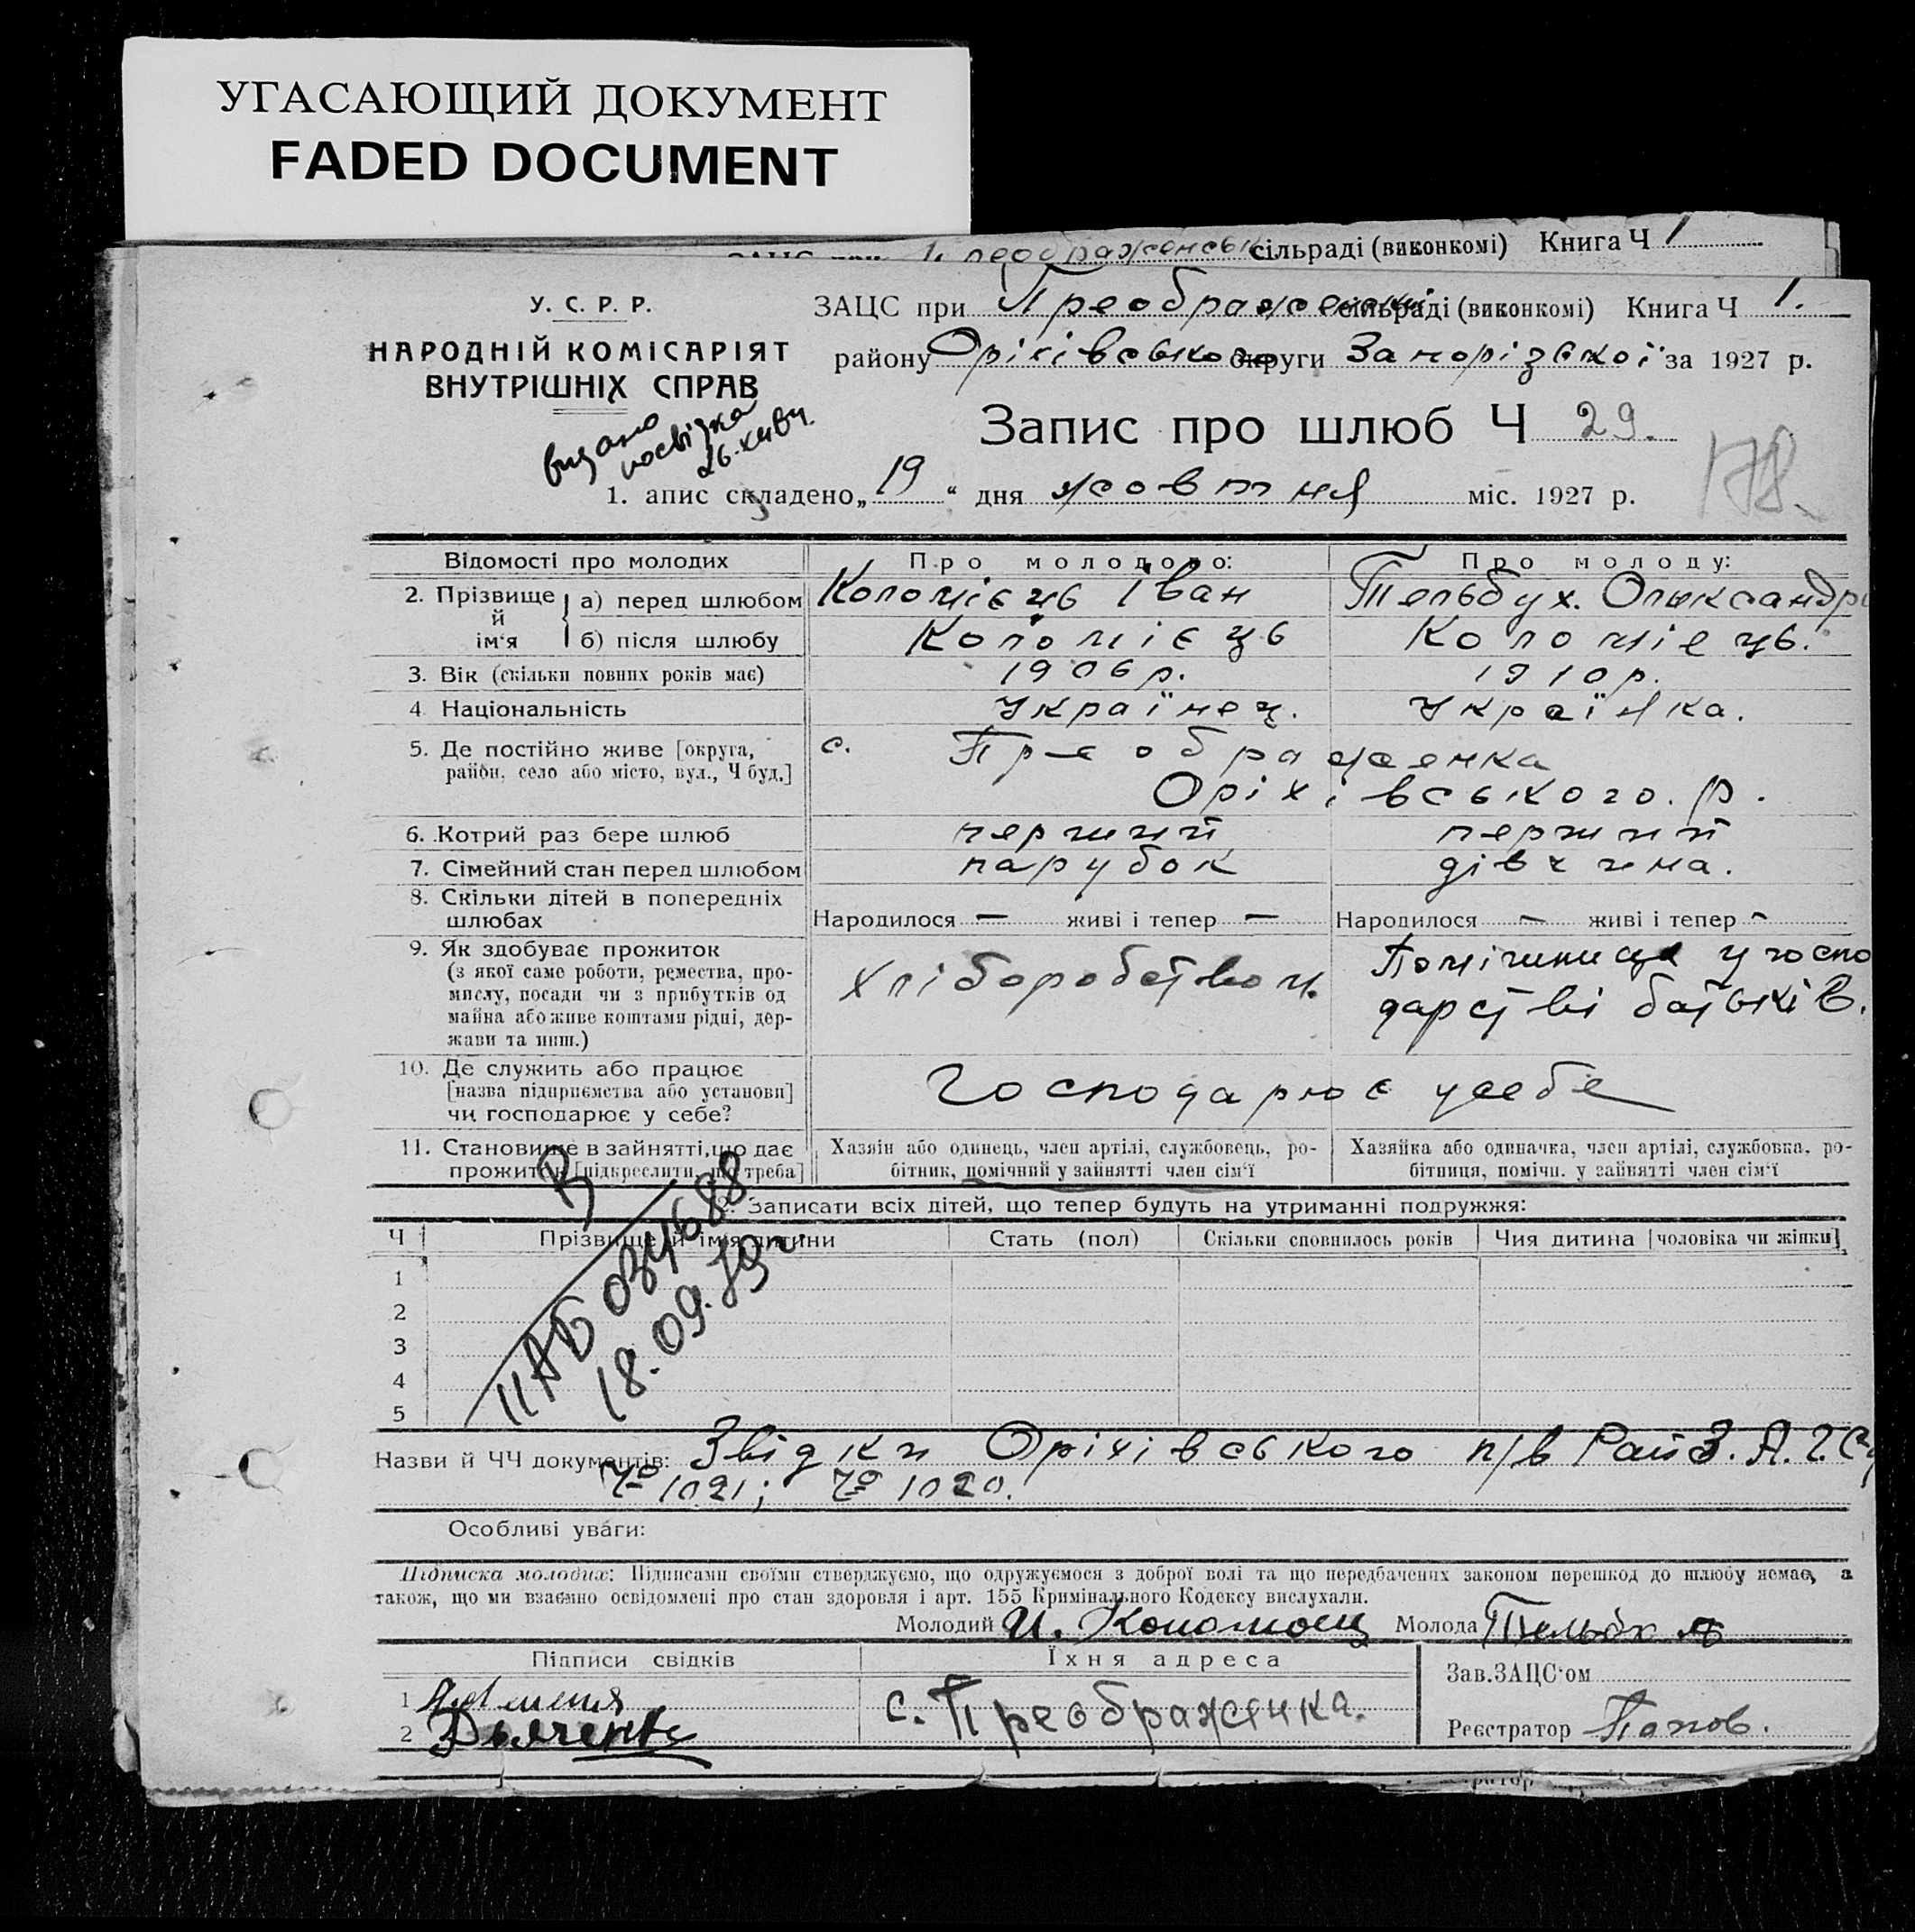 УГАСАЮЩИЙ ДОКУМЕНТ
FADED DOCUMENT
сільраді (виконкомі) Книга Ч 1
У. С. Р. Р.
НАРОДНІЙ КОМІСАРІЯТ
ВНУТРІШНІХ СПРАВ
видано
посвідка
ЗАЦС при Преображенській сільраді (виконкомі) Книга Ч 1.
району Оріхівського округи Запорізької за 1927 р.
Запис про шлюб Ч 29.
178.
1. апис складено „19“ дня жовтня міс. 1927 р.
Відомості про молодих Про молодого: Про молоду:
2. Прізвище й ім‘я а) перед шлюбом Коломієць Іван Тельбух. Олександра
б) після шлюбу Коломієць Коломієць.
3. Вік (скільки повних років має) 1906 р. 1910 р.
4 Національність Українец. Українка.
5. Де постійно живе [округа, с. Преображенка
район, село або місто, вул., Ч буд.] Оріхівського. р.
6. Котрий раз бере шлюб перший перший
7. Сімейний стан перед шлюбом парубок дівчина.
8. Скільки дітей в попередніх
шлюбах Народилося — живі і тепер — Народилося — живі і тепер —
9. Як здобуває прожиток
(з якої саме роботи, ремества, про-
мислу, посади чи з прибутків од
майна або живе коштами рідні, дер-
жави та инш.)
хліборобством.
Помішниця у госпо
дарстві батьків.
10. Де служить або працює
[назва підприємства або установи]
чи господарює у себе?
Господарює усебе
11. Становище в зайнятті, що дає Хазяін або одинець, член артілі, службовець, ро- Хазяйка або одиначка, член артілі, службовка, ро-
прожиток [підкреслити, що треба] бітник, помічний у зайнятті член сім‘ї бітниця, помічн. у зайнятті член сім‘ї
Записати всіх дітей, що тепер будуть на утриманні подружжя:
Ч Прізвище й ім‘я дитини Стать (пол) Скільки сповнилось років Чия дитина [чоловіка чи жінки]
1
2
3
4
5
ІІАБ 034688
18.09.79
Назви й ЧЧ документів: Звідки Оріхівського п/в Рай З.А.Г.С
№ 1021; № 1020.
Особливі уваги:
Підписка молодих: Підписами своїми стверджуємо, що одружуємося з доброї волі та що передбачених законом перешкод до шлюбу немає, а
також, що ми взаємно освідомлені про стан здоровля і арт. 155 Кримінального Кодексу вислухали.
Молодий И. Коломоец Молода Тельбх А
Підписи свідків Їхня адреса Зав. ЗАЦС‘ом
1
2 Дьяченко
с. Преображенка.
Реєстратор Попов.